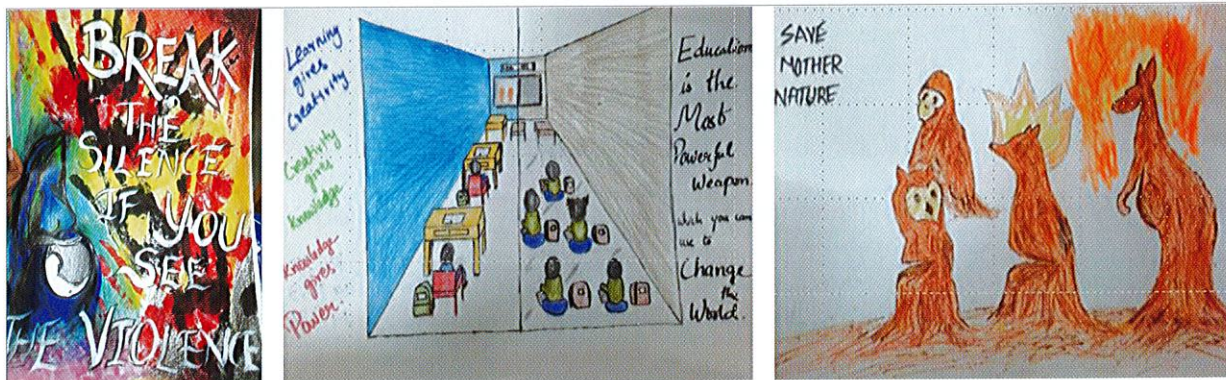 BREAK
THE
SILENCE
IF YOU
SEE
THE VIOLENCE
Learning
gives
Creativity
Creativity
gives
Knowledge
Knowledge
gives
Power.
Education
is the
Most
Powerful
Weapon
you can
use to
Change
the
World.
SAVE
MOTHER
NATURE